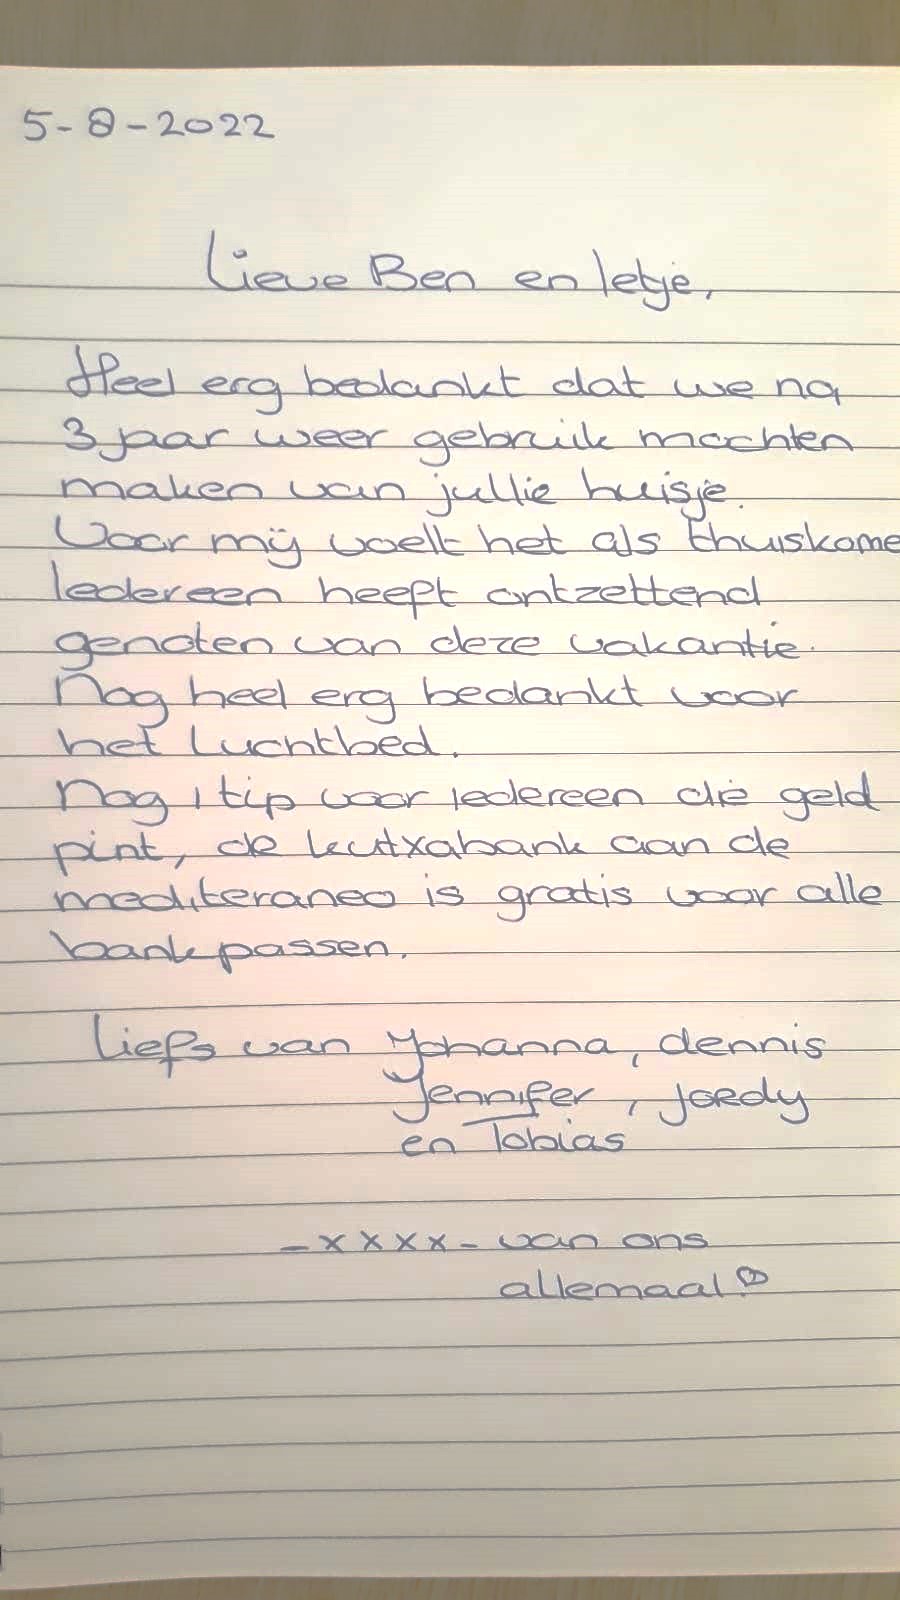 5-8-2022
Lieve Ben en Ietje,
Heel erg bedankt dat we na
3 jaar weer gebruik mochten
maken van jullie huisje.
Voor mij voelt het als thuiskome
Iedereen heeft ontzettend
genoten van deze vakantie.
Nog heel erg bedankt voor
het luchtbed.
Nog 1 tip voor iedereen die geld
pint, de kutxabank aan de
mediteraneo is gratis voor alle
bankpassen.
Liefs van Johanna, dennis
Jennifer, Jordy
en Tobias
-xxxx- van ons
allemaal!♡